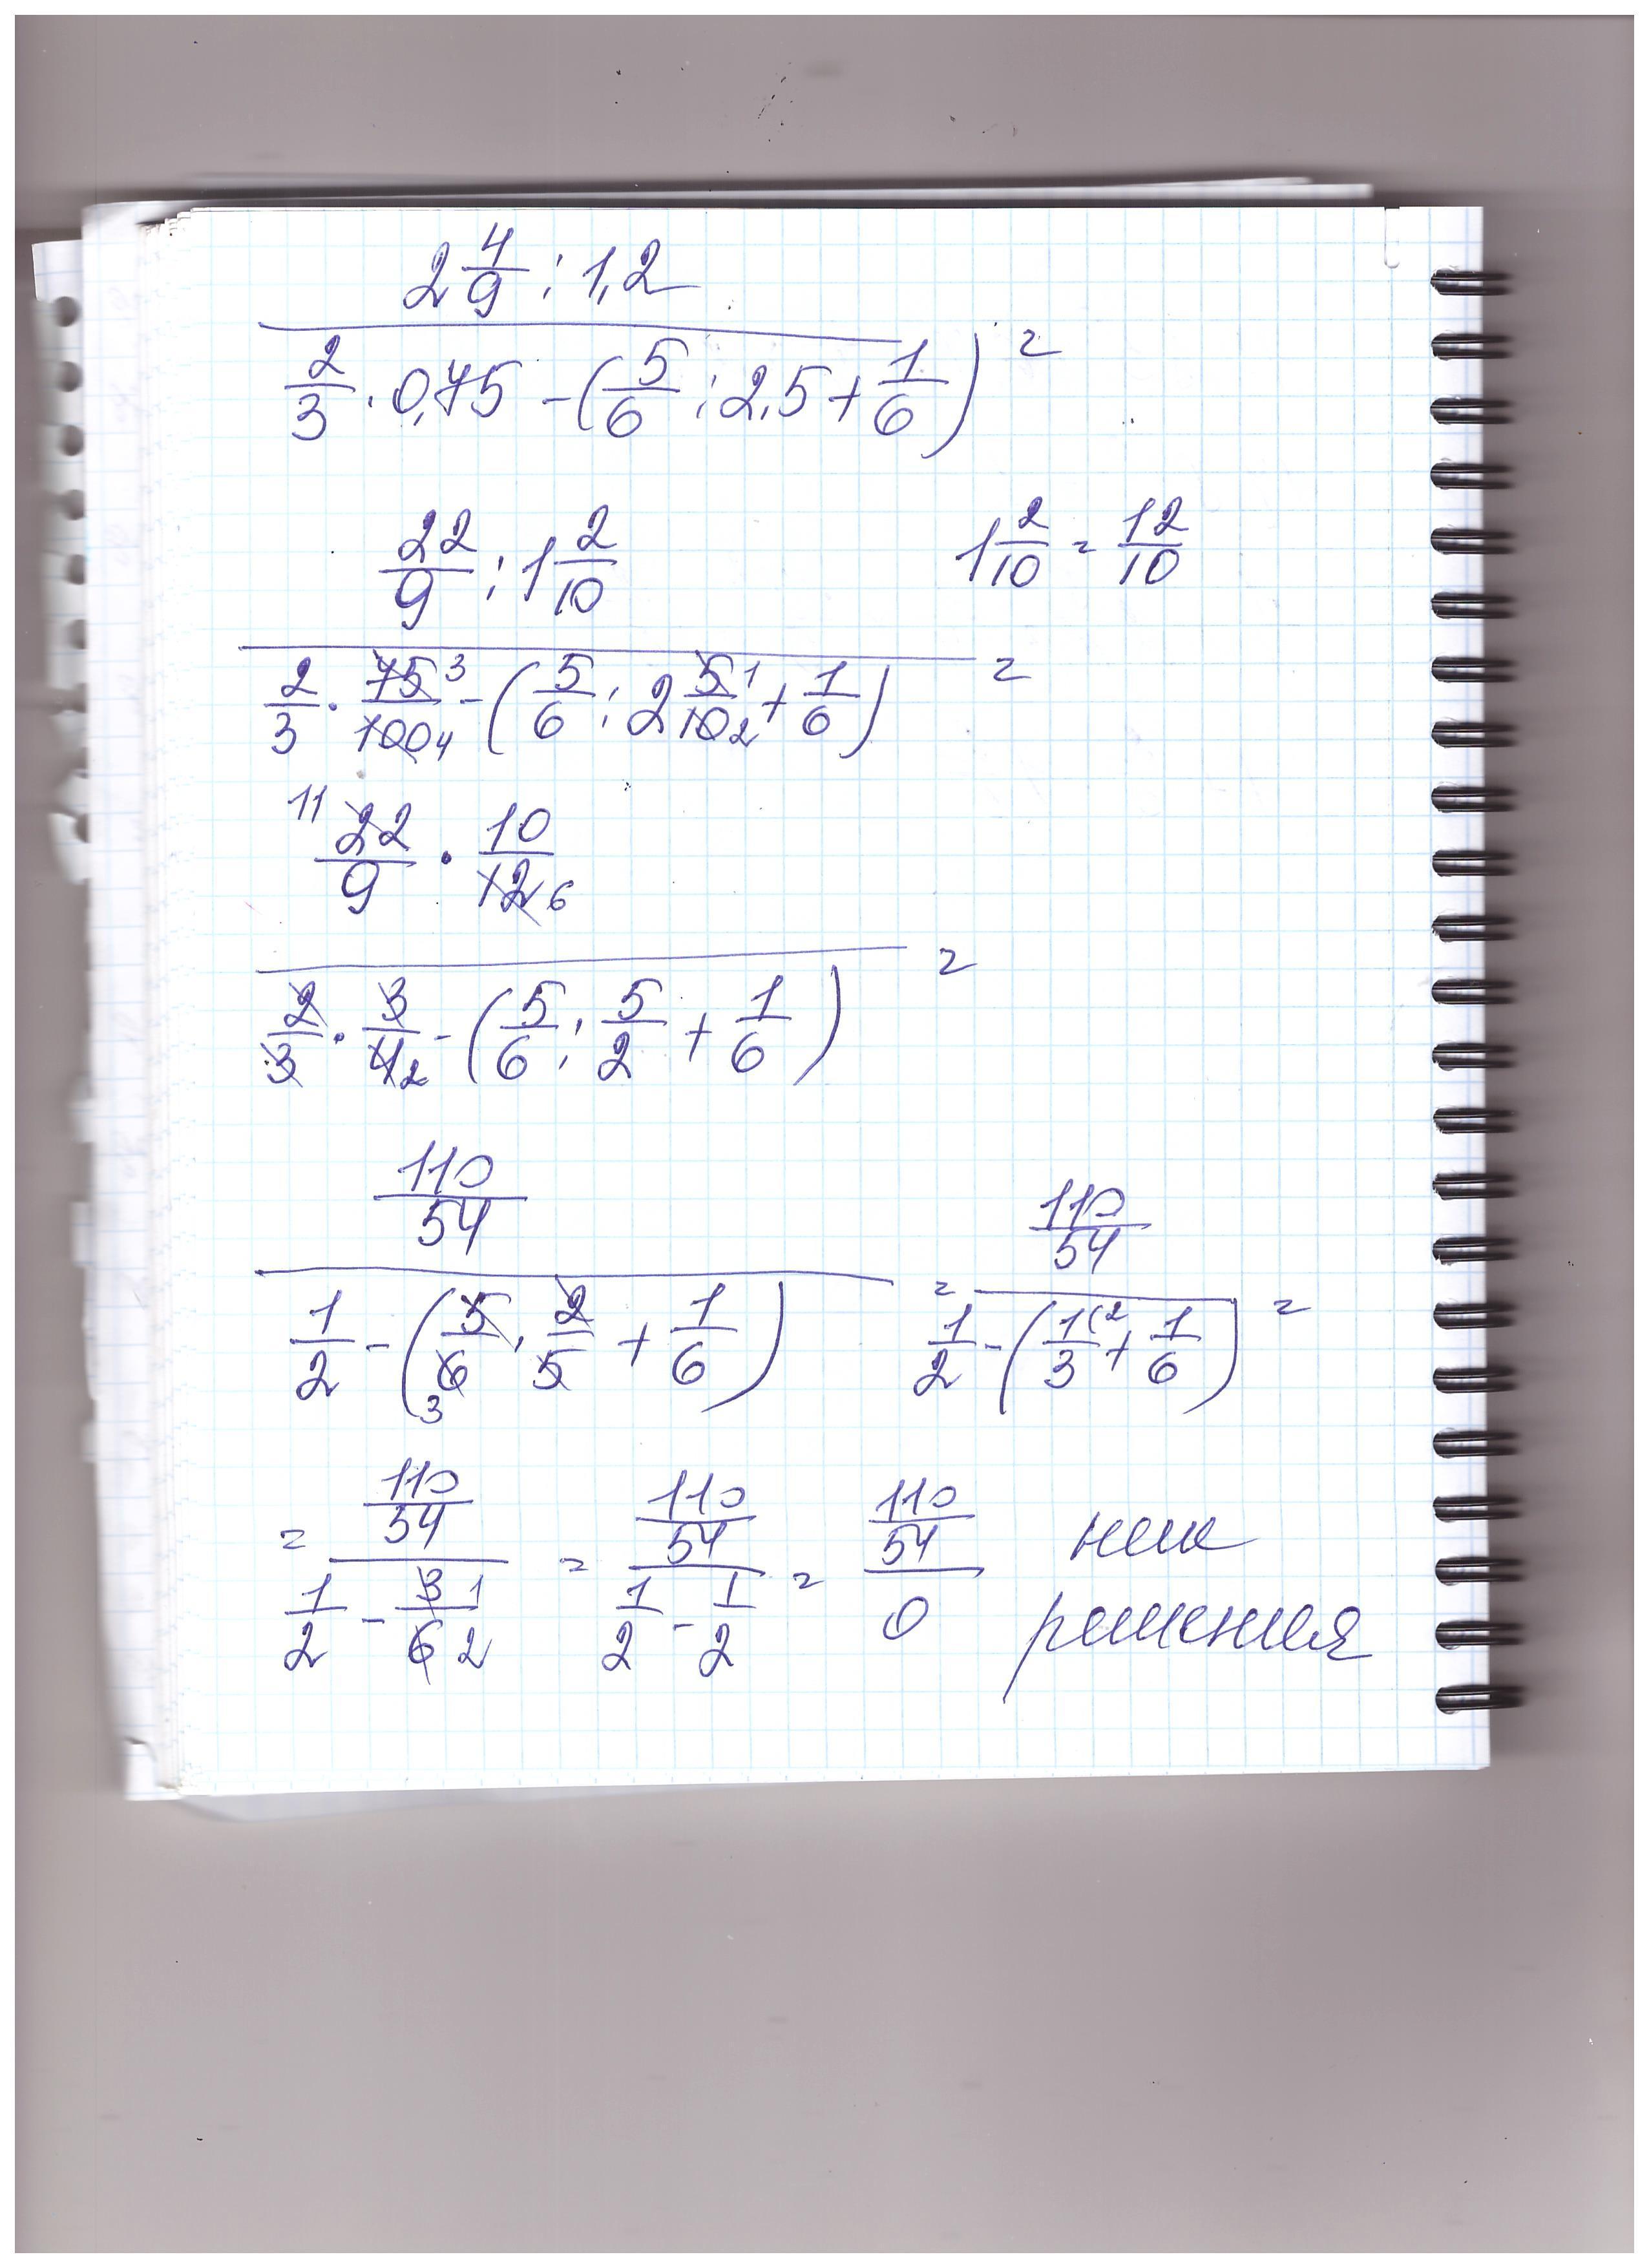 2 4/9 : 1,2
2/3 · 0,75 - (5/6 : 2,5 + 1/6) =
22/9 : 1 2/10
1 2/10 = 12/10
2/3 · 75 3/100 4 - (5/6 : 2 5 1/10 2 + 1/6) =
11 22/9 · 10/12 6
2/3 · 3/4 2 - (5/6 : 5/2 + 1/6) =
110/54
1/2 - (5/6 3 · 2/5 + 1/6) =
110/54
1/2 - (1(2/3 + 1/6) =
= 110/54
1/2 - 3 1/6 2
= 110/54
1/2 - 1/2
= 110/54
0
нет
решения